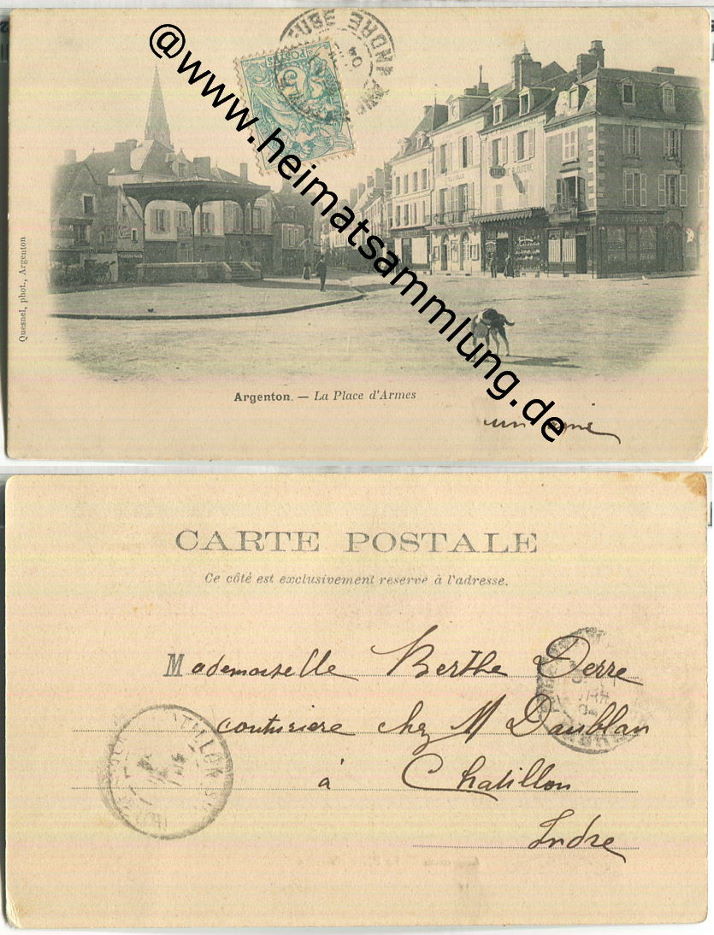 @www.heimatsammlung.de
POSTES
INDRE
Quesnel, phot., Argenton
Argenton. — La Place d'Armes
un ami
CARTE POSTALE
Ce côté est exclusivement reservé à l'adresse.
Mademoiselle Berthe Derre
couturiere chez M Daublan
à Chatillon
Indre